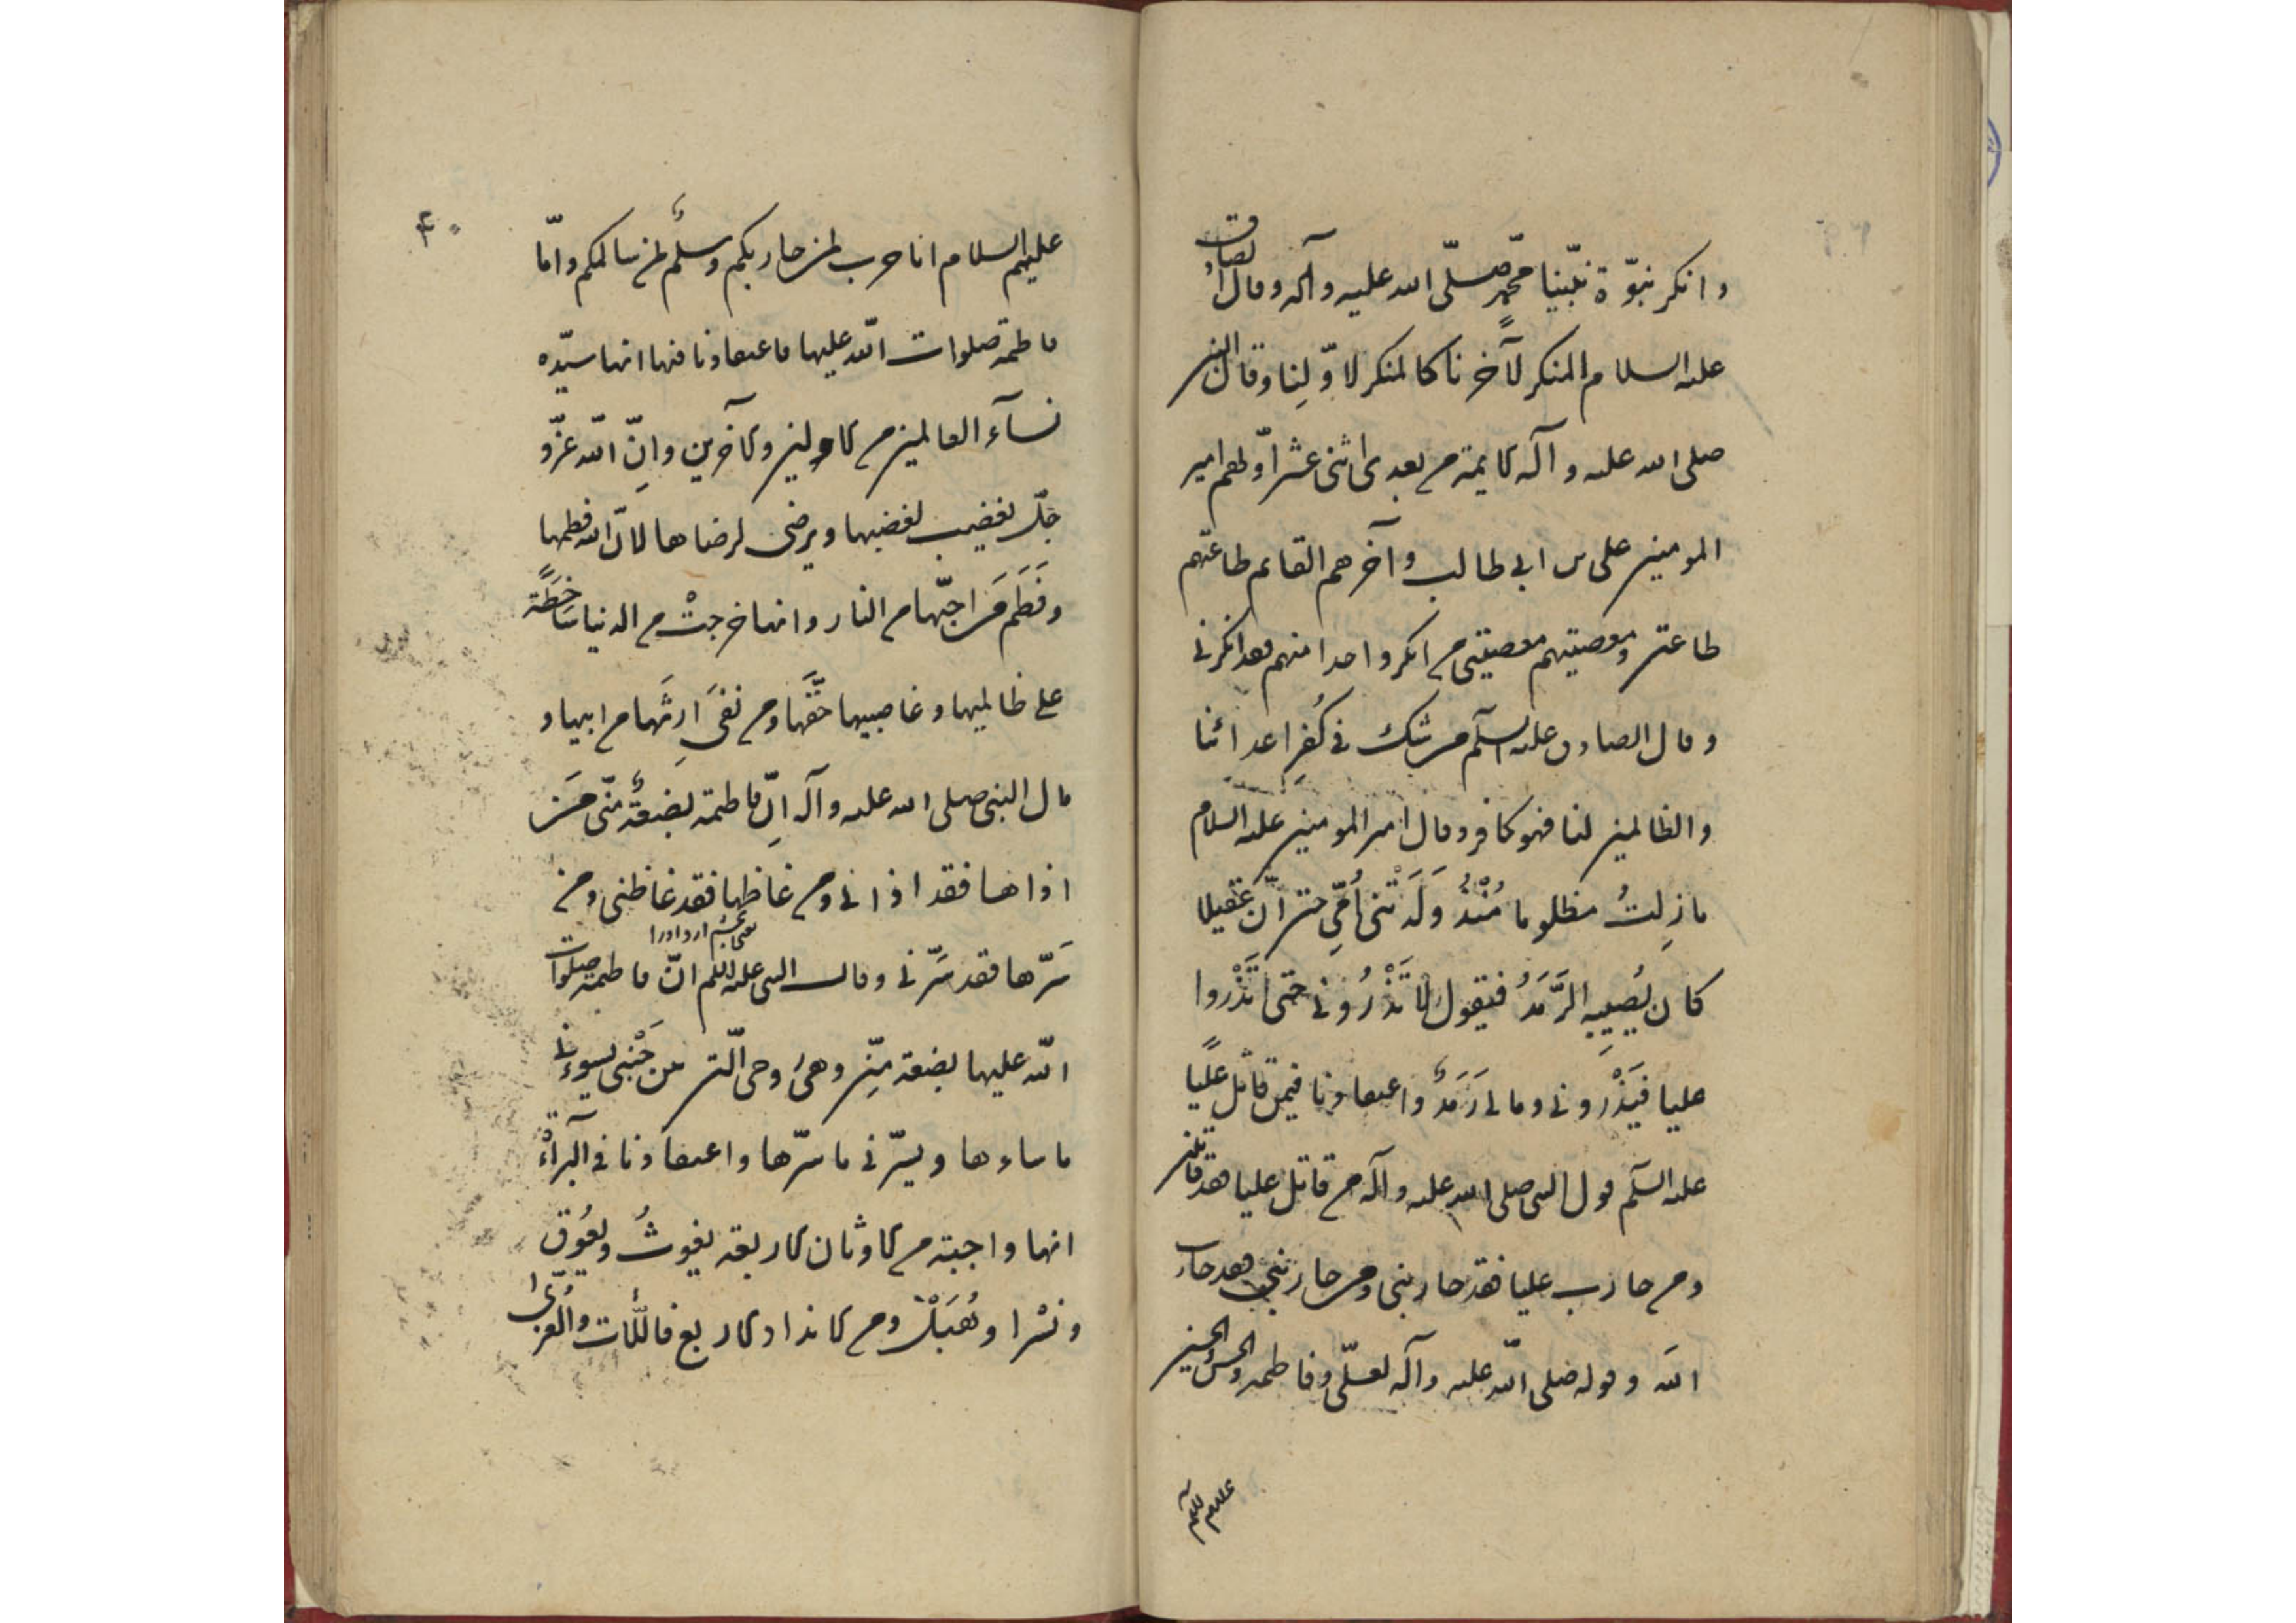 وانكر نبوّة نبّينا محمّد صلّى الله عليه وآله وقال الصادق
عليه السلام المنكر لآخرنا كالمنكر لاوّلنا وقال النبي
صلى الله عليه وآله الايمة من بعدى اثنى عشر اوّلهم امير
المومنين على بن ابى طالب وآخرهم القائم طاعتهم
طاعتى ومعصيتهم معصيتى من انكر واحدا منهم فقد انكرنى
وقال الصادق عليه السلم من شك فى كُفرِ اعدائنا
والظالمين لنا فهو كافر وقال امير المومنين عليه السلام
ما زِلتُ مظلوما مُنْذُ وَلَدَتْنى اُمّى حتى انّ عَقيلا
كان يُصيبِه الرَّمَدُ فيقول لا تَذْرُونى حتى تَذْروا
عليا فيَذْرونى وما لى رَمَدٌ واعتقادنا فيمن قاتل عليّاً
عليه السلم قول النبى صلى الله عليه وآله من قاتل عليا فقد قاتلنى
ومن حارب عليا فقد حاربنى ومن حاربنى فقد حارب
الله وقوله صلى الله عليه وآله لعلّى وفاطمه والحسن والحسين
عليهم السلام
۴۰
عليهم السلام انا حرب لمن حاربكم وسلمٌ لمن سالمكم وامّا
فاطمة صلوات الله عليها فاعتقادنا فيها انها سيّده
نسآء العالمين من الاولين والآخرين وانّ الله عزّ و
جلّ يغضب لغضبها ويرضى لرضاها لانّ الله فطمها
وفَطَم مَن احبّها من النار وانها خرجتْ من الدنيا ساخطةً
على ظالميها وغاصبيها حقّها ومن نفَى ارثَها من ابيها و
قال النبى صلى الله عليه وآله انّ فاطمة بضعةٌ منّى مَن
اذاها فقد اذانى ومن غاظها فقد غاظنى ومن
سَرّها فقد سَرّنى وقال النبى عليه السلم انّ فاطمة صلوات
الله عليها بضعة منّى وهى روحى الّتى بين جَنْبى يسوءنى
ما ساءها ويسرّنى ما سرّها واعتقادنا فى البراءْة
انها واجبة من الاوثان الاربعه يغوثُ ويعُوق
ونسْرا وهُبَلْ ومن الانداد الاربع فاللّات والعُزّى